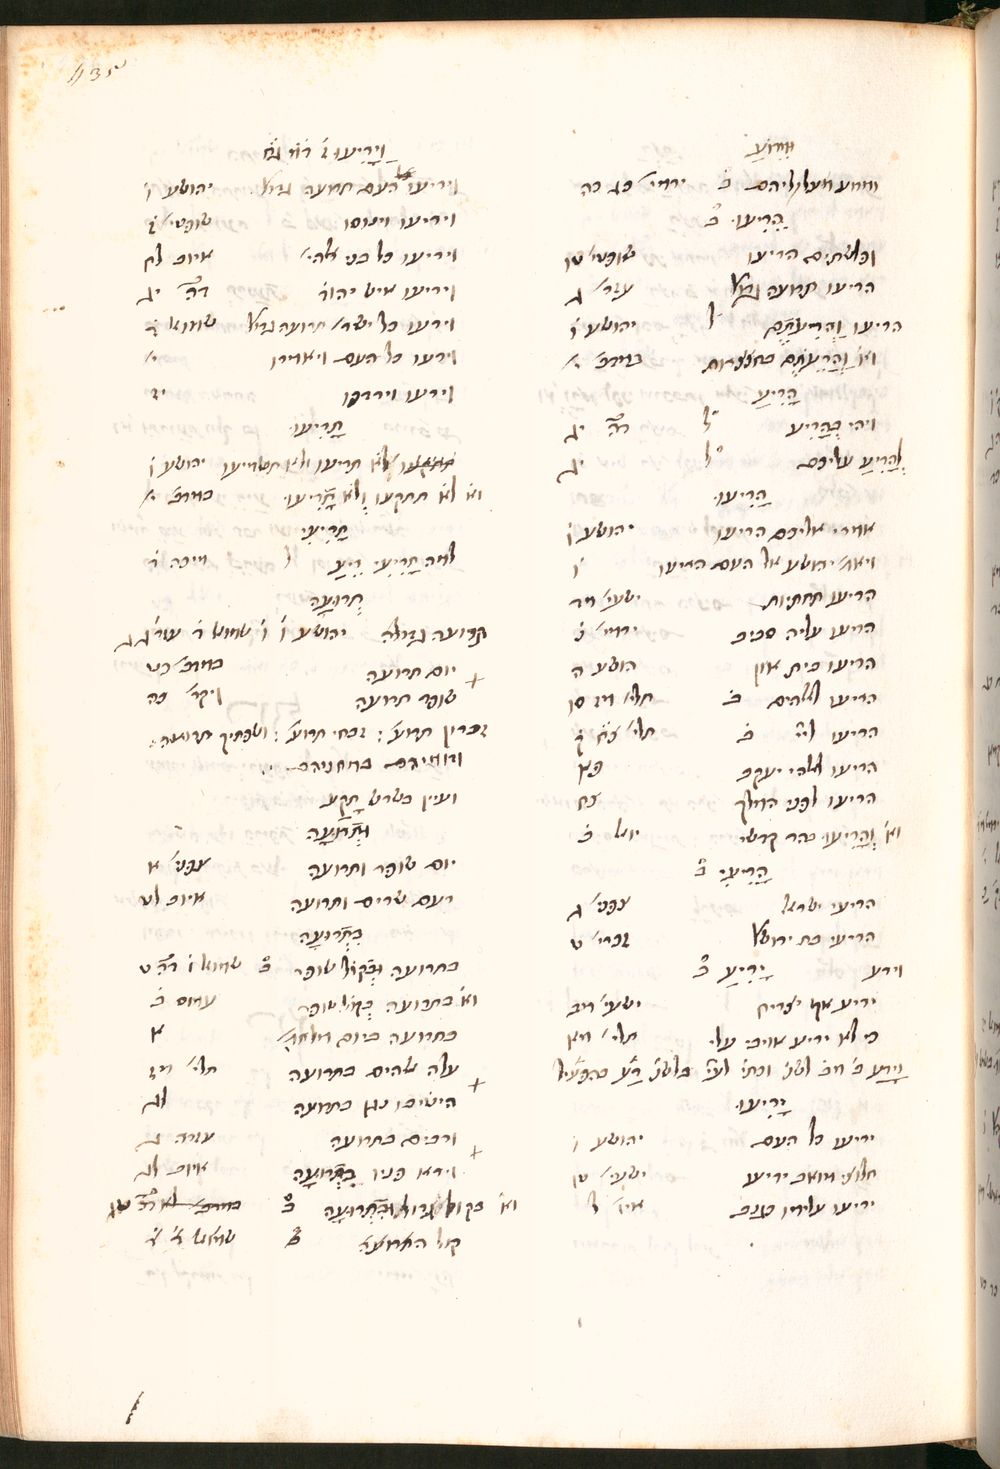 וּמֵרֹעַ
ומרוע מעלליהם ב̇ ירמי׳ כג כה
הֵרִיעוּ ב̇
ופלשתים הריעו שופטי׳ טו
הריעו תרועה גדול׳ עזר׳ ג
הריעו וַהֲרִיעֹתֶם ל׳ יהושע ו̇
וא׳ וַהֲרֵעֹתֶם בחצצרות במדב׳ י׳
הָרִיעַ
ויהי בְּהָרִיעַ ל׳ דה̇ יג
לְהָרִיעַ עליכם ל׳ יג
הָרִיעוּ
אמרי אליכם הריעו יהושע ו̇
ויאמ׳ יהושע אל העם הריעו ו̇
הריעו תחתיות ישעי׳ מד
הריעו עליה סביב ירמי׳ נ̇
הריעו בית און הושע ה
הריעו לאלהים ב̇ תלי׳ מז סו
הריעו לי״י ב̇ תלי׳ צח ק
הריעו לאלהי יעקב פא
הריעו לפני המלך צח
וא׳ וְהָרִיעוּ בהר קדשי יואל ב̇
הָרִיעִי ב̇
הריעי ישראל צפני׳ ג
הריעי בת ירושל׳ זכרי׳ ט
וירע יָרִיעַ ב̇
יריע אף יצריח ישעי׳ מב
כי לא יריע אויבי עלי תלי׳ מא
יָרִיעוּ
יריעו כל העם יהושע ו
חלוצי מואב יריעו ישעי׳ טו
יריעו עלימו כגנב איוב ל
וַיָּרִיעוּ
ויריעו העם תרועה גדול׳ יהושע ו̇
ויריעו וינוסו שופטי׳ ז̇
ויריעו כל בני אלהי׳ איוב לח
ויריעו איש יהוד׳ דה̇ יג
וירעו כל ישר׳ תרועה גדול׳ שמוא׳ ד̇
וירעו כל העם ויאמרו י׳
וירעו וירדפו יז
תָרִיעוּ
לא תריעו ולא תשמיעו יהושע ו̇
וא׳ לא תתקעו וְלֹא תָרִיעוּ במדב׳ י׳
תָרִיעִי
למה תָרִיעִי רֵיעַ ל׳ מיכה ד̇
תְרוּעָה
תרועה גדולה יהושע ו̇ ו̇ שמוא׳ ד̇ עזר׳ ג ג
יום תרועה במדב׳ כט
שופר תרועה ויקר׳ כה
זכרון תרוע׳: זבחי תרוע׳: ושפתיך תרועה:
ועיין בשרש תָקַע
וּתְרוּעָה
יום שופר ותרועה צפני׳ א
רעם שרים ותרועה איוב לט
בִתְרוּעָה
בתרועה וּבְקוֹל שופר ב̇ שמוא׳ ו̇ דה̇ ט
וא׳ בתרועה בְּקוֹל שופר עמוס ב̇
בתרועה ביום מלחמ׳ א
עלה אלהים בתרועה תלי׳ מז
היטיבו נגן בתרועה לג
ורבים בתרועה עזרה ג
וירא פניו בִּתְרוּעָה איוב לג
וא׳ בקול גדול וּבִתְרוּעָה ב̇
קול התרועה ב̇ שמוא׳ ד̇ ד̇